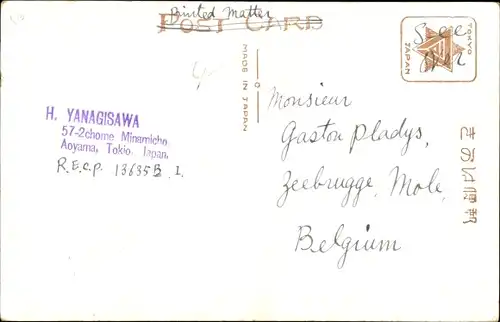 Printed Matter
POST CARD
See
over
TOKYO
JAPAN
MADE IN JAPAN
H. YANAGISAWA
57-2chome Minamicho,
Aoyama, Tokio, Japan.
R.E.C.P. 13635B I.
Monsieur
Gaston Pladys,
Zeebrugge, Mole,
Belgium